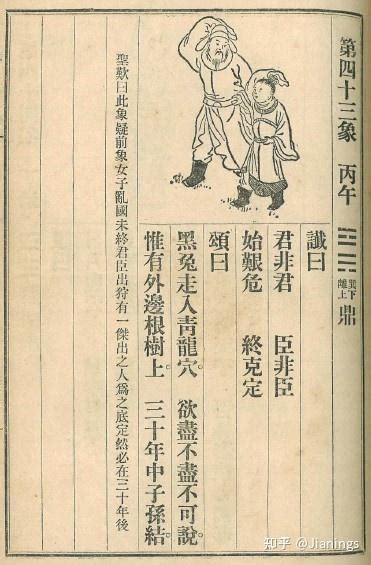 第四十三象　丙午　䷱　巽下離上　鼎
讖曰
君非君　臣非臣
始艱危　終克定
頌曰
黑兔走入青龍穴。欲盡不盡不可說。
惟有外邊根樹上　三十年中子孫結。
聖歎曰此象疑前象女子亂國未終君臣出狩有一傑出之人為之底定然必在三十年後
知乎 @Jianings